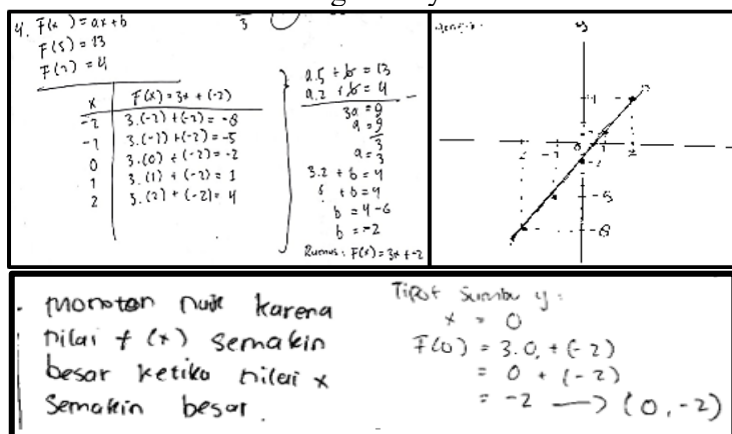 4. F(x) = ax+b
F(5) = 13
F(2) = 4
x
F(x) = 3x + (-2)
-2 3.(-2) + (-2) = -8
-1 3.(-1) + (-2) = -5
0 3.(0) + (-2) = -2
1 3.(1) + (-2) = 1
2 3.(2) + (-2) = 4
3
a.5 + b = 13
a.2 + b = 4
3a = 9
a = 9
3
a = 3
3.2 + b = 4
6 + b = 4
b = 4-6
b = -2
Rumus : F(x) = 3x + -2
y
4
-5
-8
monoton naik karena
nilai f (x) semakin
besar ketika nilai x
semakin besar.
Titot sumbu y :
x = 0
F(0) = 3.0, + (-2)
= 0 + (-2)
= -2 → (0, -2)